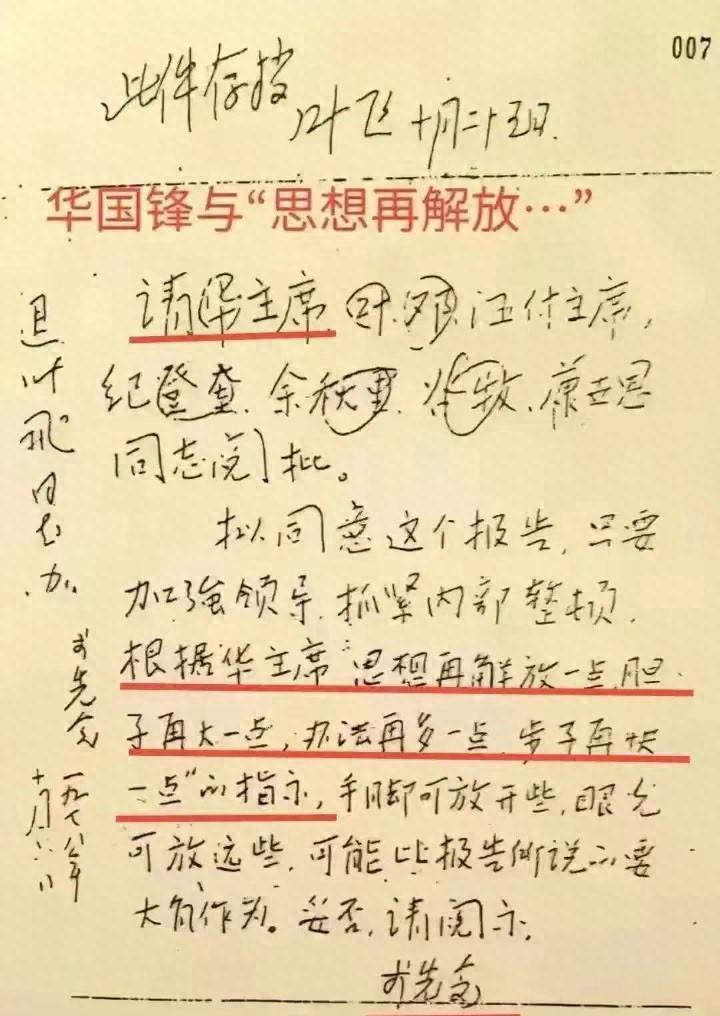 007
此件存档
叶飞 十月二十五日.
华国锋与“思想再解放…”
请华主席、叶、邓、汪付主席,
纪登奎、余秋里、谷牧、康世恩
同志阅批。
拟同意这个报告,只要
加強领导,抓紧内部整顿,
根据华主席“思想再解放一点,胆
子再大一点,办法再多一点,步子再快
一点”的指示,手脚可放开些,眼光
可放远些,可能比报告所说的要
大有作为。妥否,请阅示。
李先念
退叶飞同志办.
李先念
一九七八年
十月